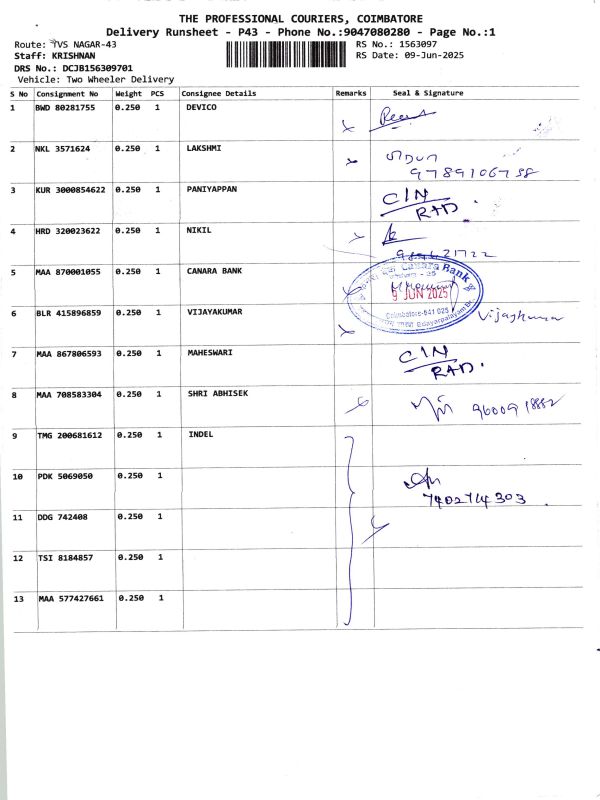 THE PROFESSIONAL COURIERS, COIMBATORE
Delivery Runsheet - P43 - Phone No.:9047080280 - Page No.:1
Route: TVS NAGAR-43
Staff: KRISHNAN
DRS No.: DCJB156309701
Vehicle: Two Wheeler Delivery
RS No.: 1563097
RS Date: 09-Jun-2025
S No Consignment No Weight PCS Consignee Details Remarks Seal & Signature
1 BWD 80281755 0.250 1 DEVICO
2 NKL 3571624 0.250 1 LAKSHMI
9789106738
3 KUR 3000854622 0.250 1 PANIYAPPAN CIN
RAD
4 HRD 320023622 0.250 1 NIKIL
5 MAA 870001055 0.250 1 CANARA BANK
Canara Bank
9 JUN 2025
Coimbatore-641 025
Edayarpalayam Br.
6 BLR 415896859 0.250 1 VIJAYAKUMAR Vijaykumar
7 MAA 867806593 0.250 1 MAHESWARI CIN
RAD.
8 MAA 708583304 0.250 1 SHRI ABHISEK
9 TMG 200681612 0.250 1 INDEL
10 PDK 5069050 0.250 1
7402714303
11 DDG 742408 0.250 1
12 TSI 8184857 0.250 1
13 MAA 577427661 0.250 1